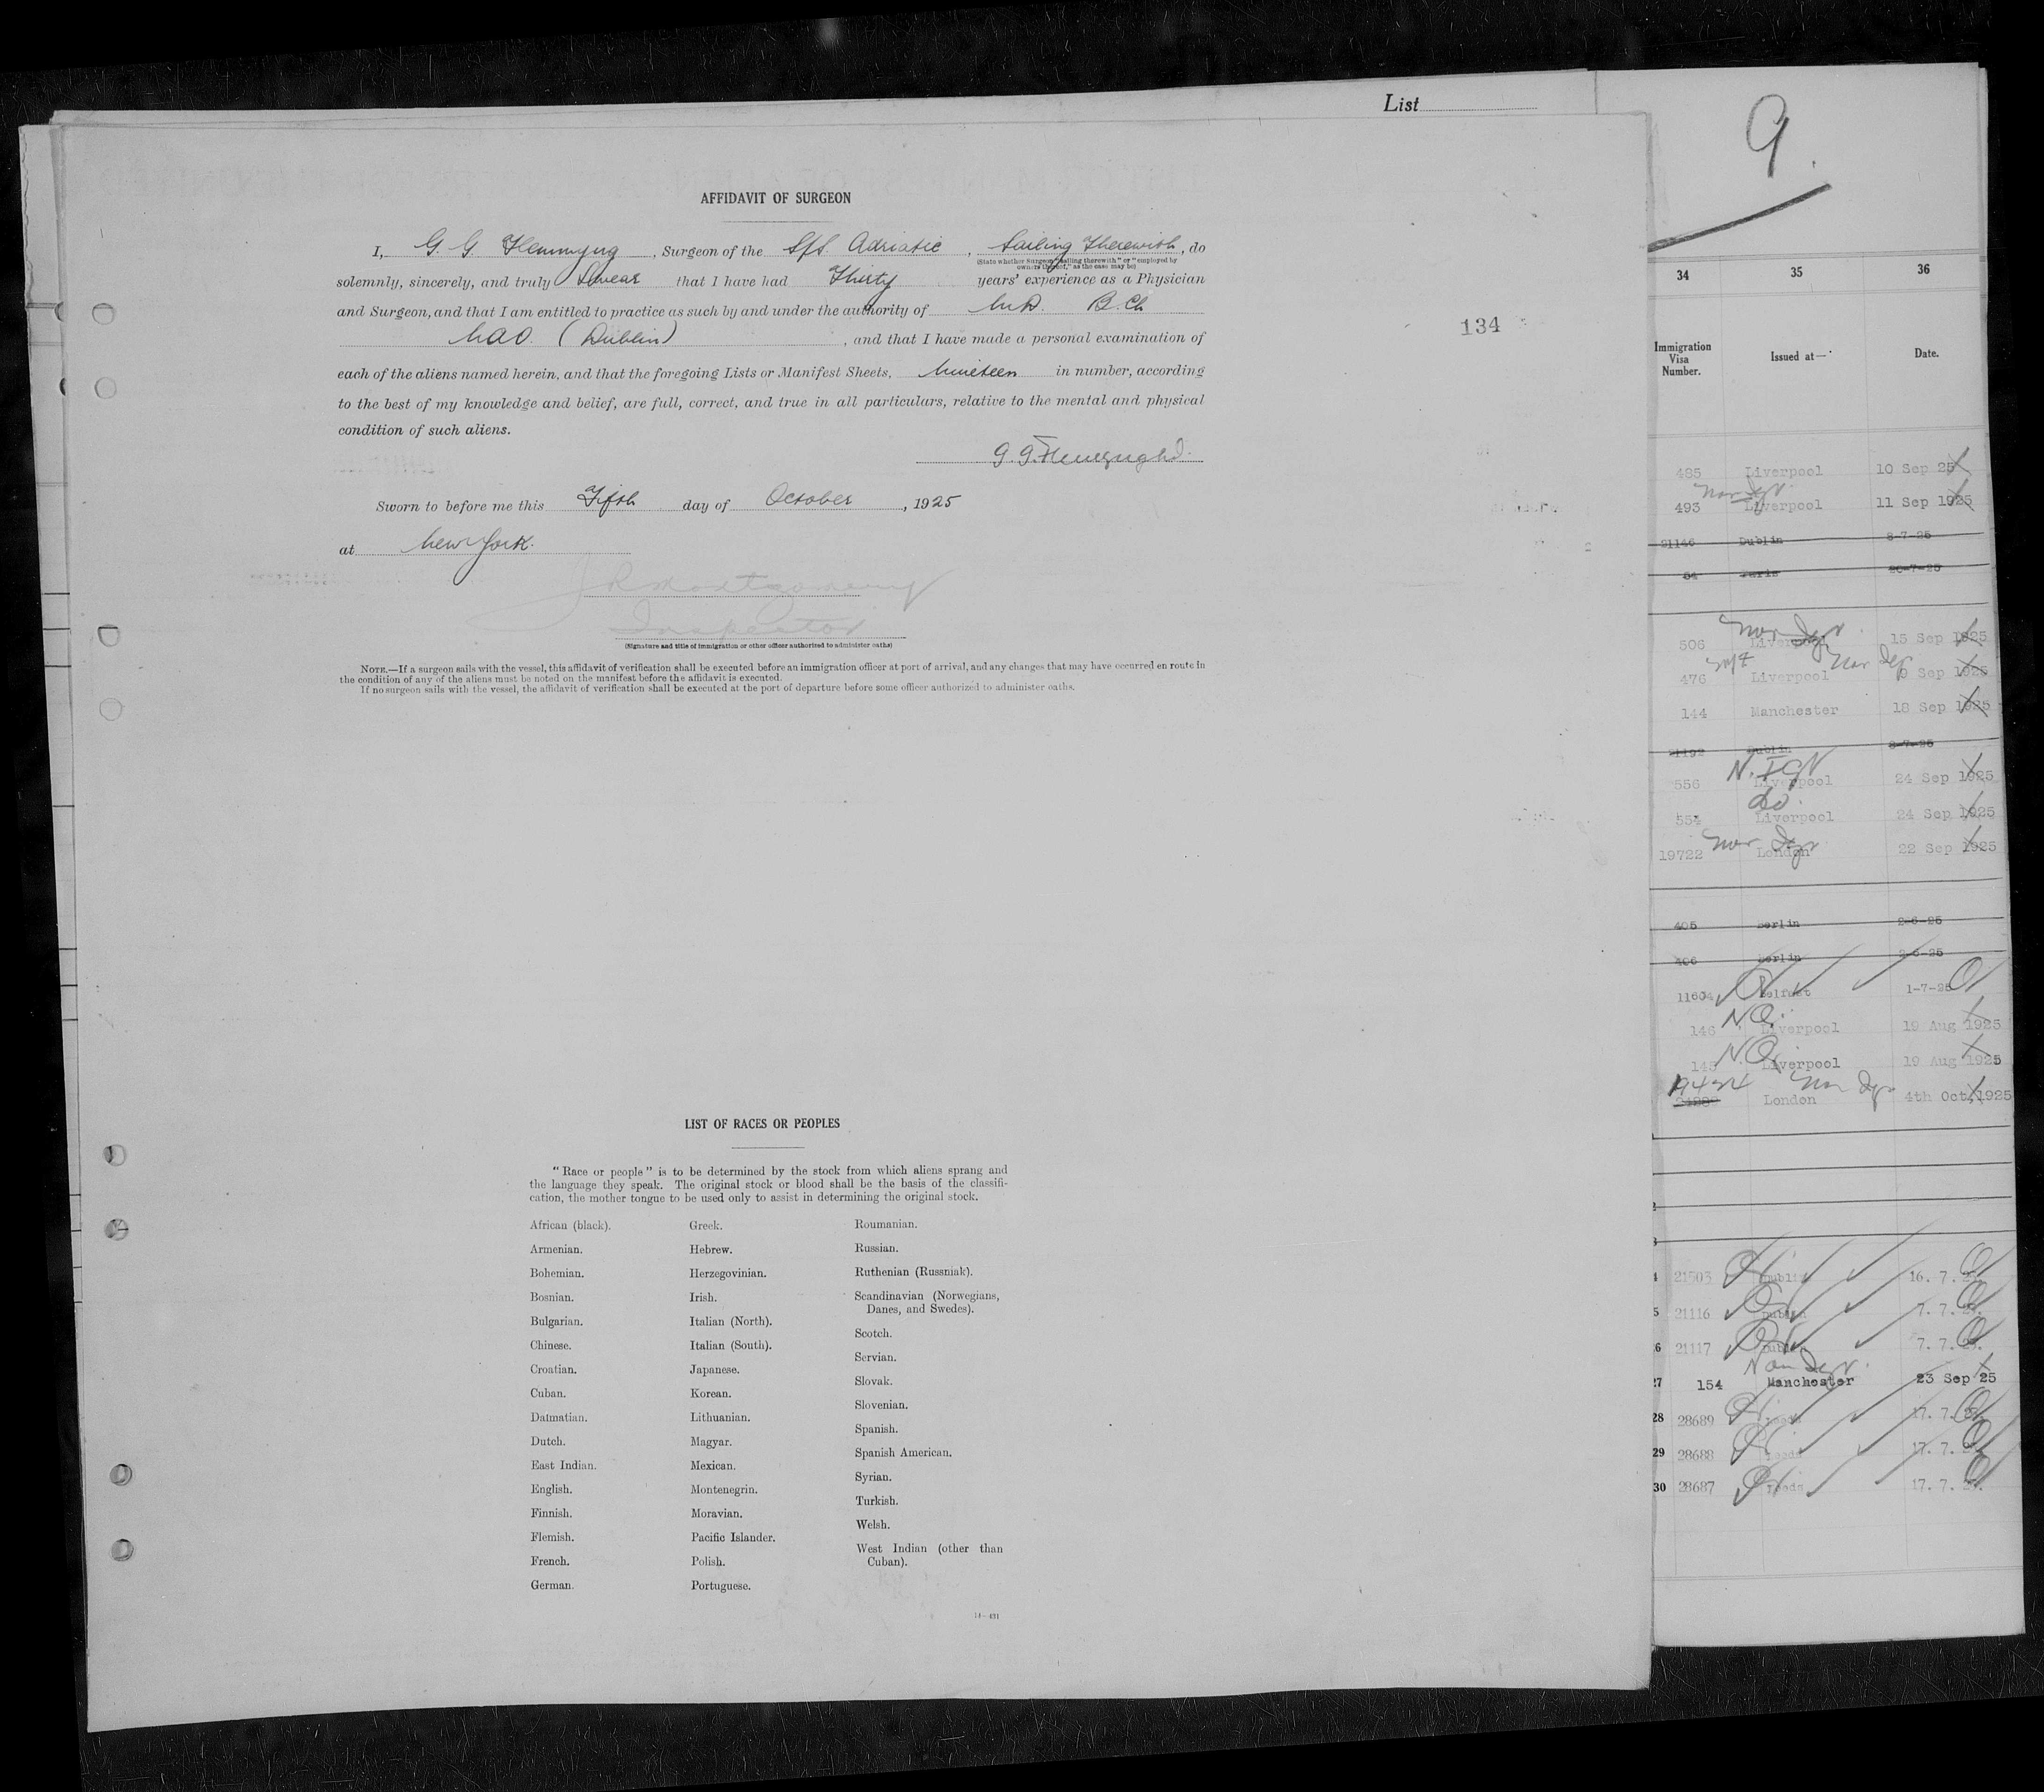 List
9.
AFFIDAVIT OF SURGEON
I, G. G. Flemmyng, Surgeon of the S/S. Adriatic, Sailing Therewith, do
(State whether Surgeon "sailing therewith" or "employed by owners thereof," as the case may be)
solemnly, sincerely, and truly Swear that I have had Thirty years' experience as a Physician
and Surgeon, and that I am entitled to practice as such by and under the authority of M.D. B.Ch
MAO. (Dublin), and that I have made a personal examination of
each of the aliens named herein, and that the foregoing Lists or Manifest Sheets, Nineteen in number, according
to the best of my knowledge and belief, are full, correct, and true in all particulars, relative to the mental and physical
condition of such aliens.
Sworn to before me this Fifth day of October, 1925
at New York.
J R Montgomery
Inspector
(Signature and title of immigration or other officer authorized to administer oaths)
NOTE.—If a surgeon sails with the vessel, this affidavit of verification shall be executed before an immigration officer at port of arrival, and any changes that may have occurred en route in
the condition of any of the aliens must be noted on the manifest before the affidavit is executed.
If no surgeon sails with the vessel, the affidavit of verification shall be executed at the port of departure before some officer authorized to administer oaths.
134
LIST OF RACES OR PEOPLES
"Race or people" is to be determined by the stock from which aliens sprang and
the language they speak. The original stock or blood shall be the basis of the classifi-
cation, the mother tongue to be used only to assist in determining the original stock.
African (black).
Armenian.
Bohemian.
Bosnian.
Bulgarian.
Chinese.
Croatian.
Cuban.
Dalmatian.
Dutch.
East Indian.
English.
Finnish.
Flemish.
French.
German.
Greek.
Hebrew.
Herzegovinian.
Irish.
Italian (North).
Italian (South).
Japanese.
Korean.
Lithuanian.
Magyar.
Mexican.
Montenegrin.
Moravian.
Pacific Islander.
Polish.
Portuguese.
Roumanian.
Russian.
Ruthenian (Russniak).
Scandinavian (Norwegians,
Danes, and Swedes).
Scotch.
Servian.
Slovak.
Slovenian.
Spanish.
Spanish American.
Syrian.
Turkish.
Welsh.
West Indian (other than
Cuban).
34 35 36
Immigration
Visa
Number.
Issued at—
Date.
485 Liverpool 10 Sep 25
493 Liverpool 11 Sep 1925
21146 Dublin 8-7-25
Paris
506 Liverpool 15 Sep 1925
476 Liverpool 9 Sep 1925
144 Manchester 18 Sep 1925
Dublin 8-7-25
556 Liverpool 24 Sep 1925
do.
554 Liverpool 24 Sep 1925
19722 London 22 Sep 1925
405 Berlin 2-6-25
406 Berlin 2-6-25
11604 Belfast 1-7-25
N.Q.
146 Liverpool 19 Aug 1925
N.Q.
145 Liverpool 19 Aug 1925
London 4th Oct, 1925
21503 Dublin 16. 7. 25.
21116 Dublin 7. 7. 25.
21117 Dublin 7. 7. 25.
27 154 Manchester 23 Sep 25
28 28689 Leeds 17. 7. 25.
29 28688 Leeds 17. 7. 25.
30 28687 Leeds 17. 7. 25.